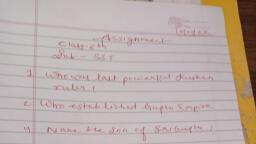 Assignment
Class 6th
Sub - SST
1 Who was last powerful Kushan
ruler?
2 Who established Gupta Empire
4 Name the Son of SriGupta?